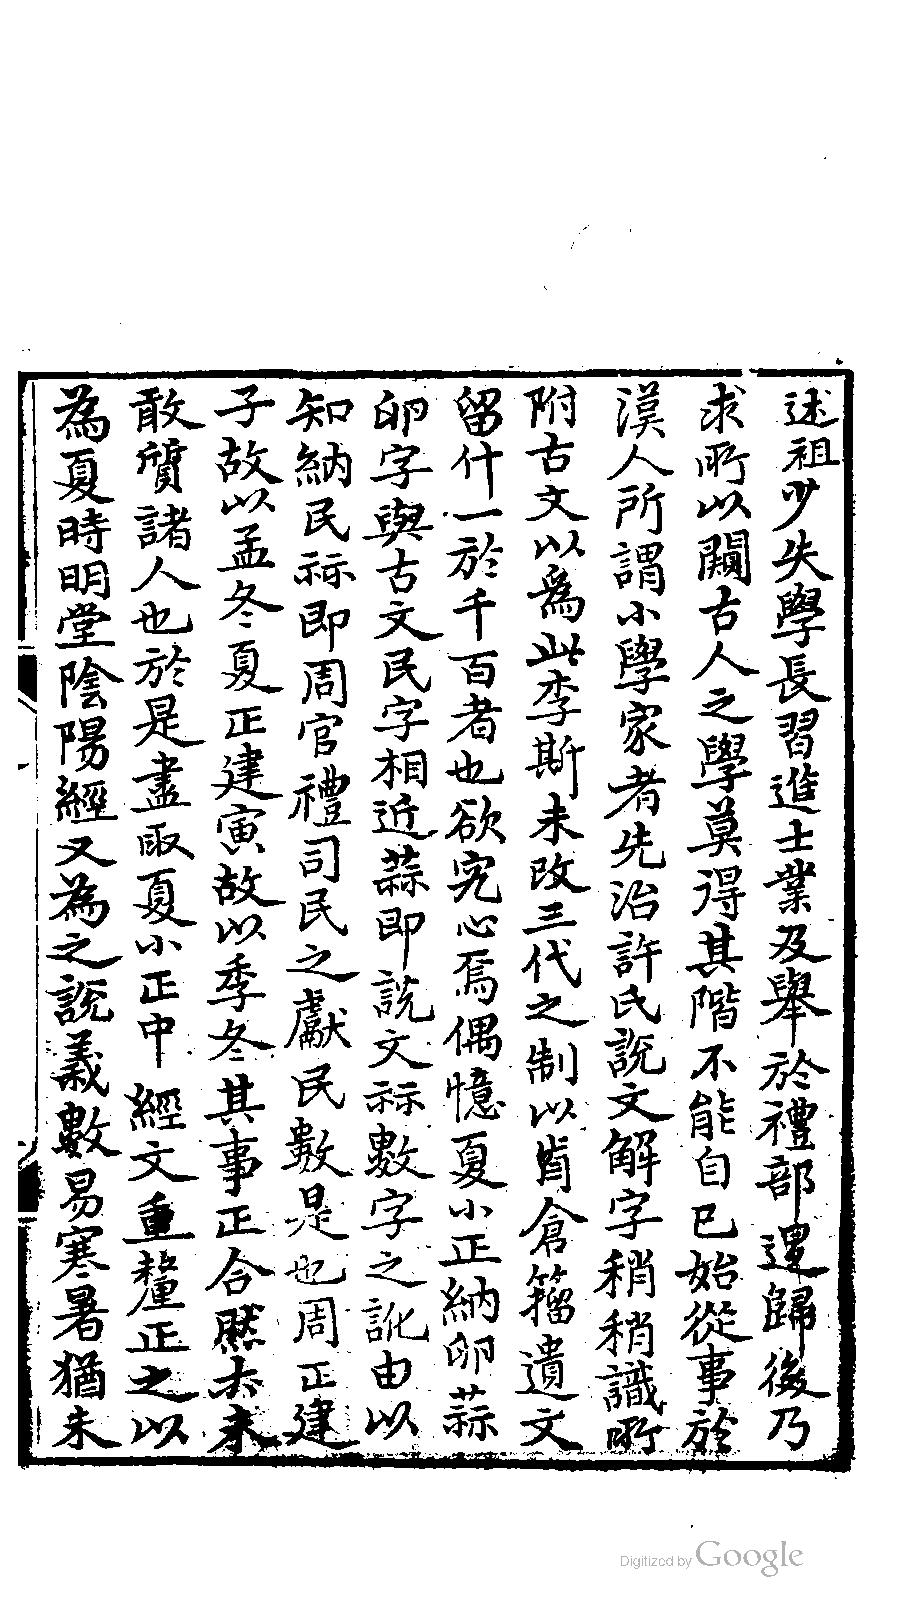 述祖少失學長習進士業及舉於禮部還歸後乃
求所以闚古人之學莫得其階不能自已始從事於
漢人所謂小學家者先治許氏說文解字稍稍識所
附古文以爲此李斯未改三代之制以前倉籀遺文
留什一於千百者也欲究心焉偶憶夏小正納卵蒜
卵字與古文民字相近蒜即說文祘數字之訛由以
知納民祘即周官禮司民之獻民數是也周正建
子故以孟冬夏正建寅故以季冬其事正合然亦未
敢質諸人也於是盡取夏小正中經文重釐正之以
為夏時明堂陰陽經又為之說義數易寒暑猶未
Digitized by Google